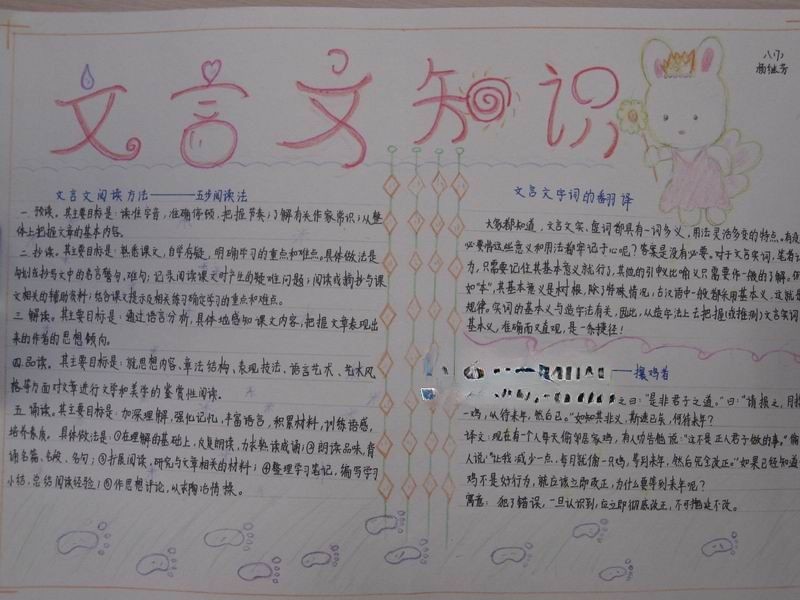 文言文知识
八(7)
杨继芳
文言文阅读方法——五步阅读法
一.预读。其主要目标是：读准字音，准确停顿，把握节奏；了解有关作家常识；从整
体上把握文章的基本内容。
二.抄读。其主要目标是：熟悉课文，自学存疑，明确学习的重点和难点。具体做法是
勾划在抄写文中的名言警句，难句；记录阅读课文时产生的疑难问题；阅读或摘抄与课
文相关的辅助资料；结合课文提示及相关练习确定学习的重点和难点。
三.解读。其主要目标是：通过语言分析，具体地感知课文内容，把握文章表现出
来的作者的思想倾向。
四.品读。其主要目标是：就思想内容、章法结构、表现技法、语言艺术、艺术风
格等方面对文章进行文学和美学的鉴赏性阅读。
五.诵读。其主要目标是：加深理解，强化记忆，丰富语言，积累材料，训练语感，
培养素质。具体做法是：①在理解的基础上，反复朗读，力求熟读成诵；②朗读品味，背
诵名篇、名段、名句；③扩展阅读，研究与文章相关的材料；④整理学习笔记，编写学习
小结，总结阅读经验；⑤作思想讨论，从求陶冶情操。
文言文字词的翻译
大家都知道，文言文实、虚词都具有一词多义，用法灵活多变的特点。有没
必要将这些意义和用法都牢记于心呢？答案是没有必要。对于文言实词，笔者认
为，只需要记住其基本意义就行了，其他的引申义比喻义只需要作一般的了解。例
如"本"，其基本意义是树根，除了特殊情况，古汉语中一般都采用基本义，这就是
规律。实词的基本义与造字法有关，因此，从造字法上去把握(或推测)文言实词的
基本义，准确而又直观，是一条捷径！
攘鸡者
之曰："是非君子之道。"曰："请损之，月攘
一鸡，以待来年，然后已。"如知其非义，斯速已矣，何待来年？
译文：现在有个人每天偷邻居家鸡，有人劝告他说："这不是正人君子做的事。"偷
人说："让我减少一点，每月就偷一只鸡，等到来年，然后完全改正。"如果已经知道偷
鸡不是好行为，就应该立即改正，为什么要等到来年呢？
寓意：犯了错误，一旦认识到，应立即彻底改正，不可拖延不改。